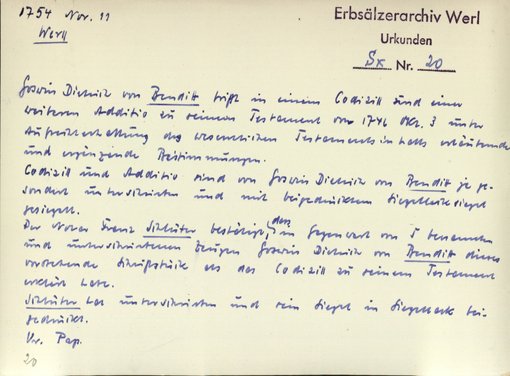 1754 Nov. 11
Werl
Erbsälzerarchiv Werl
Urkunden
Sx Nr. 20
Goswin Dietrich von Benditt trifft in einem Codizill und einer
weiteren Additio zu seinem Testament von 1746 Okt. 3 unter
Aufrechterhaltung des wesentlichen Testamentsinhalts erläuternde
und ergänzende Bestimmungen.
Codizill und Additio sind von Goswin Dietrich von Bendit je ge-
sondert unterschrieben und mit beigedrücktem Siegellacksiegel
gesiegelt.
Der Notar Franz Schlüter bestätigt, dass in Gegenwart von 5 benannten
und unterschriebenen Zeugen Goswin Dietrich von Benditt dieses
vorstehende Schriftstück als das Codizill zu seinem Testament
erklärt habe.
Schlüter hat unterschrieben und sein Siegel in Siegellack bei-
gedrückt.
Ur. Pap.
20